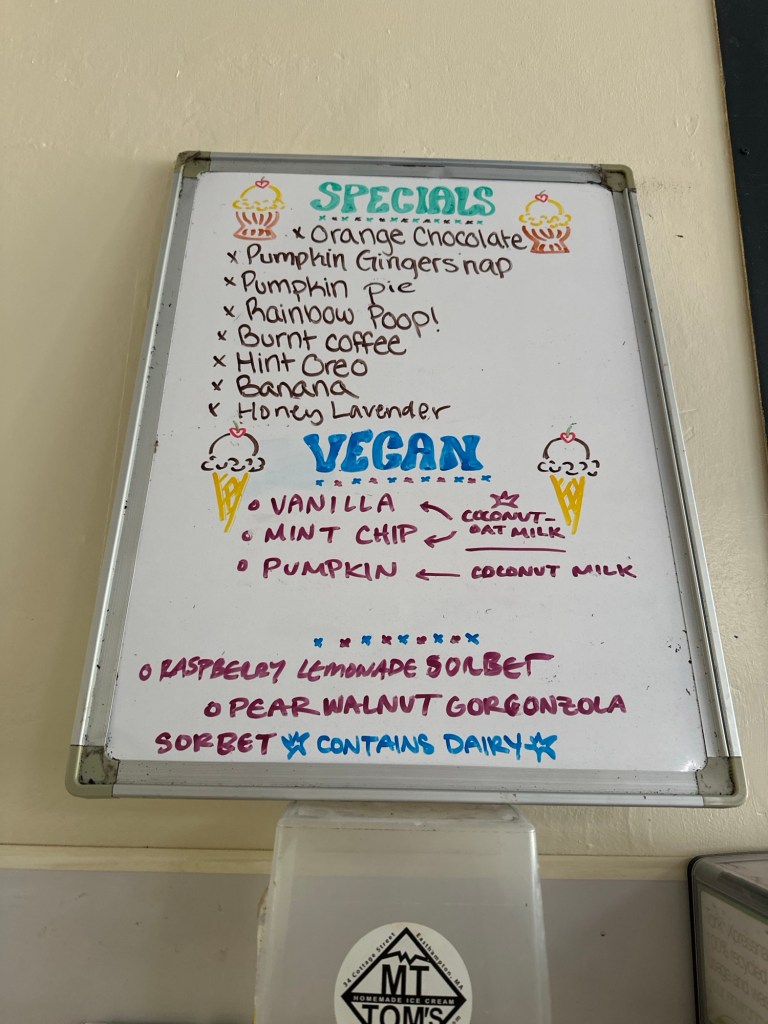 SPECIALS
x Orange Chocolate
x Pumpkin Gingersnap
x Pumpkin pie
x Rainbow Poop!
x Burnt coffee
x Mint Oreo
x Banana
x Honey Lavender
VEGAN
VANILLA
COCONUT-
MINT CHIP
OAT MILK
PUMPKIN ← COCONUT MILK
RASPBERRY LEMONADE SORBET
PEAR WALNUT GORGONZOLA
SORBET CONTAINS DAIRY
24 Cottage Street Easthampton, MA
MT
HOMEMADE ICE CREAM
TOM'S